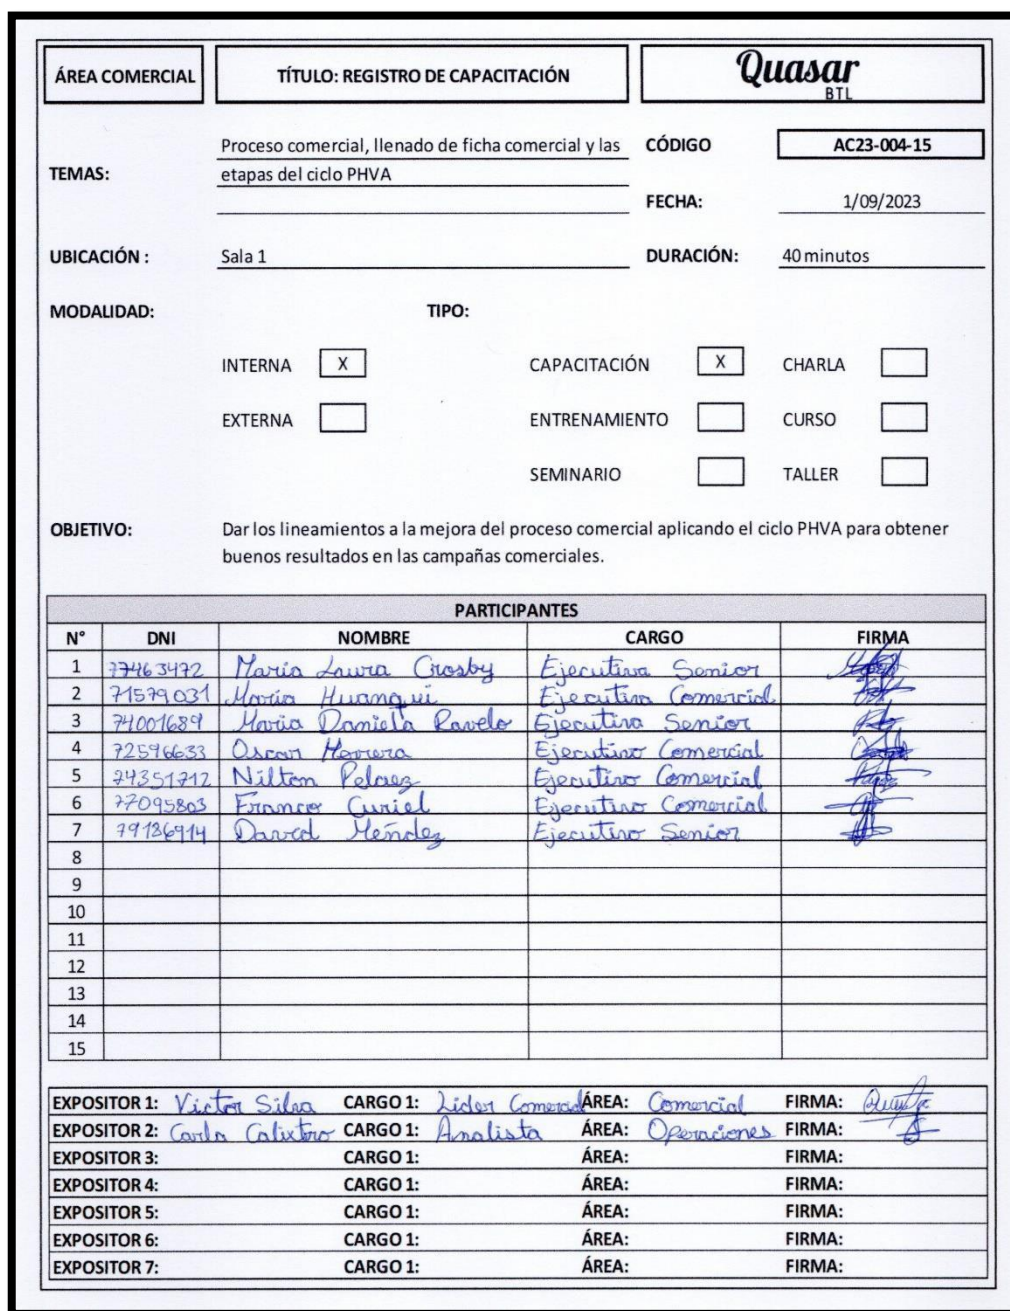 ÁREA COMERCIAL TÍTULO: REGISTRO DE CAPACITACIÓN Quasar
BTL
Proceso comercial, llenado de ficha comercial y las CÓDIGO AC23-004-15
TEMAS: etapas del ciclo PHVA
FECHA: 1/09/2023
UBICACIÓN : Sala 1 DURACIÓN: 40 minutos
MODALIDAD: TIPO:
INTERNA X CAPACITACIÓN X CHARLA
EXTERNA ENTRENAMIENTO CURSO
SEMINARIO TALLER
OBJETIVO: Dar los lineamientos a la mejora del proceso comercial aplicando el ciclo PHVA para obtener
buenos resultados en las campañas comerciales.
PARTICIPANTES
N° DNI NOMBRE CARGO FIRMA
1 77463472 Maria Laura Crosby Ejecutiva Senior
2 71579031 Maria Huanqui Ejecutiva Comercial
3 74001689 Maria Daniella Ravelo Ejecutiva Senior
4 72596633 Oscar Herrera Ejecutivo Comercial
5 74351712 Nilton Pelaez Ejecutivo Comercial
6 77095803 Franco Curiel Ejecutivo Comercial
7 79186914 David Méndez Ejecutivo Senior
8
9
10
11
12
13
14
15
EXPOSITOR 1: Victor Silva CARGO 1: Lider Comercial ÁREA: Comercial FIRMA:
EXPOSITOR 2: Carla Calixtro CARGO 1: Analista ÁREA: Operaciones FIRMA:
EXPOSITOR 3: CARGO 1: ÁREA: FIRMA:
EXPOSITOR 4: CARGO 1: ÁREA: FIRMA:
EXPOSITOR 5: CARGO 1: ÁREA: FIRMA:
EXPOSITOR 6: CARGO 1: ÁREA: FIRMA:
EXPOSITOR 7: CARGO 1: ÁREA: FIRMA: